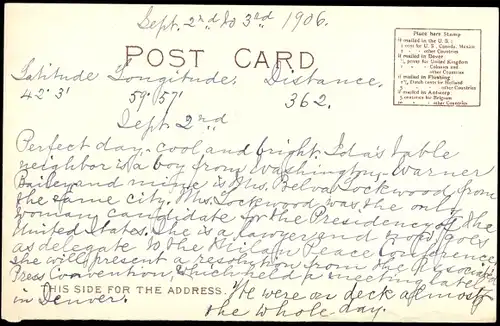 Sept. 2nd to 3rd 1906.
Place here Stamp
If mailed in the U.S.:
for U.S., Canada, Mexico
other Countries
If mailed in Dover
for United Kingdom
Colonies and
other Countries
If mailed in Flushing
Dutch cents for Holland
other Countries
If mailed in Antwerp
centimes for Belgium
other Countries
POST CARD.
Latitude Longitude. Distance.
42° 3' 59° 57' 362.
Sept. 2nd
Perfect day - cool and bright. Ida's table
neighbor is a boy from Washington - Warner
Bailey and mine is Mrs. Belva Lockwood from
the same city. Mrs. Lockwood was the only
woman candidate for the Presidency of the
United States. She is a lawyer and now goes
as delegate to the Milan Peace Conference
She will present a resolution from the Associated
Press Convention, which held a meeting lately
THIS SIDE FOR THE ADDRESS.
in Denver. We were on deck almost
the whole day.